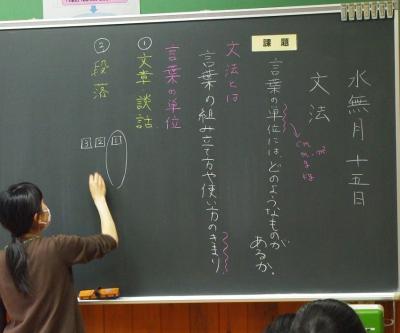 水無月 十五日
文法
課題
言葉の単位には、どのようなものが
あるか。
cm
m
g
kg
m²
文法とは
言葉の組み立て方や使い方のきまり
言葉の単位
① 文章 談話
② 段落
1
2
3